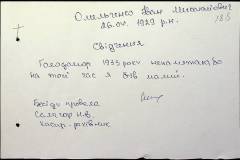 Омельченко Іван Михайлович
26.04. 1929 р.н.
185
Свідчення
Голодомор 1933 року не пам'ятаю, бо
на той час я був малий.
Бесіду провела
Селягор Н.В.
касир-рахівник